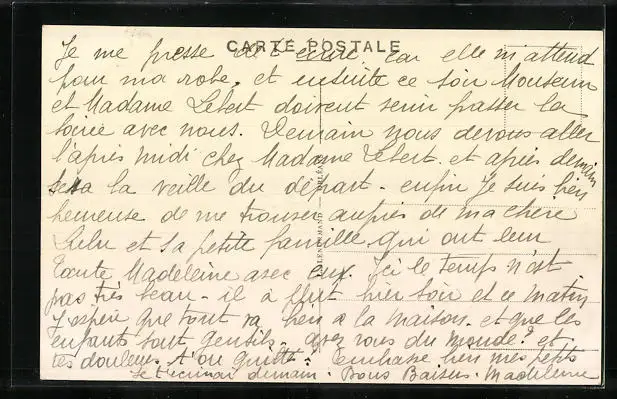 CARTE POSTALE
Je me presse de t'écrire, car elle m'attend
pour ma robe. et ensuite ce soir Monsieur
et Madame Lebert doivent venir passer la
soirée avec nous. Demain nous devons aller
l'après midi chez Madame Lebert. et après demain
sera la veille du départ - enfin je suis bien
heureuse de me trouver auprès de ma chère
Lulu et sa petite famille qui ont leur
Tante Madeleine avec eux. Ici le temps n'est
pas très beau - il a plut hier soir et ce matin
J'espère que tout va bien a la maison. et que les
enfants sont gentils - avez vous du monde? et
tes douleurs t'ont quitté? Embrasse bien mes petits
je t'écrirai demain. Bons Baisers. Madeleine